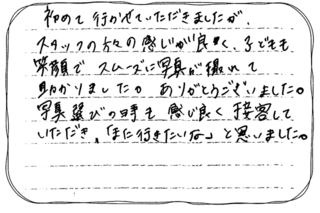 初めて行かせていただきましたが、
スタッフの方々の感じが良く、子どもも
笑顔でスムーズに写真が撮れて
助かりましたありがとうございました。
写真選びの時も感じ良く接客して
いただき、「また行きたいな」と思いました。